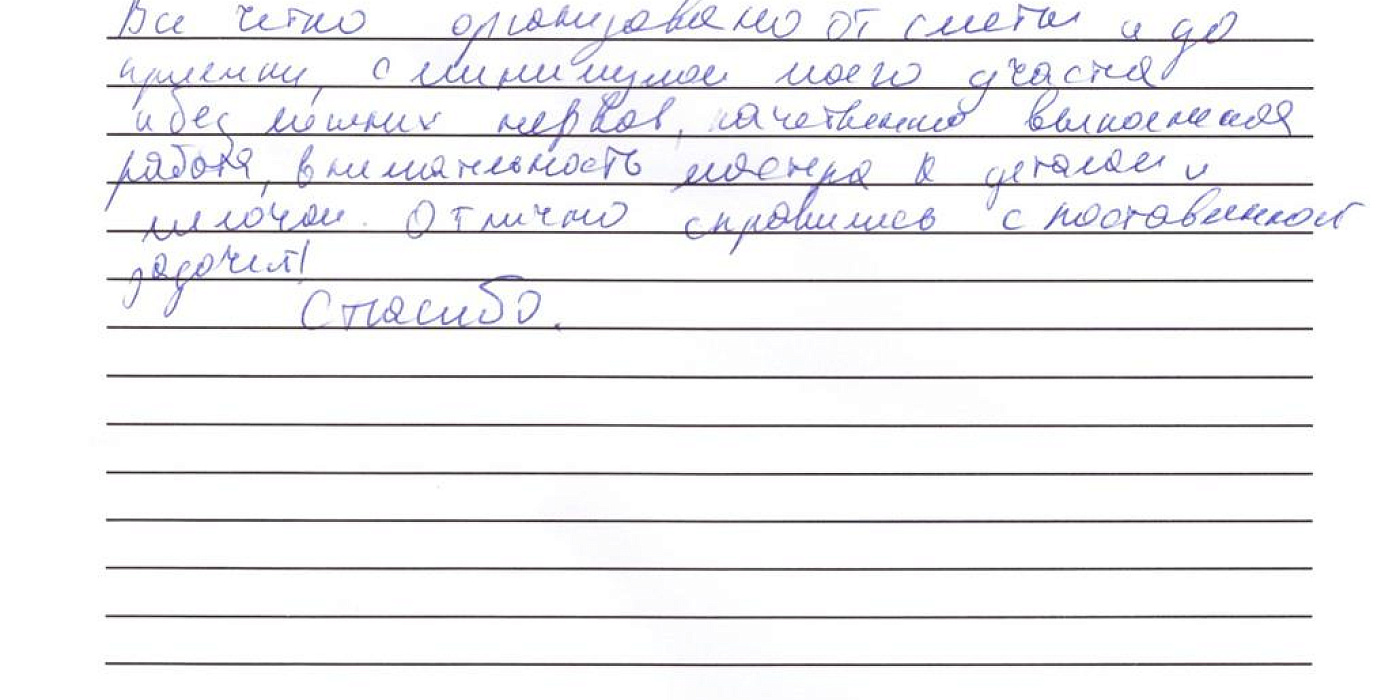 Все четко организовано от сметы и до
приемки, с минимумом моего участия
и без лишних нервов, качественно выполненная
работа, внимательность мастера к деталям и
мелочам. Отлично справились с поставленной
задачей!
Спасибо.